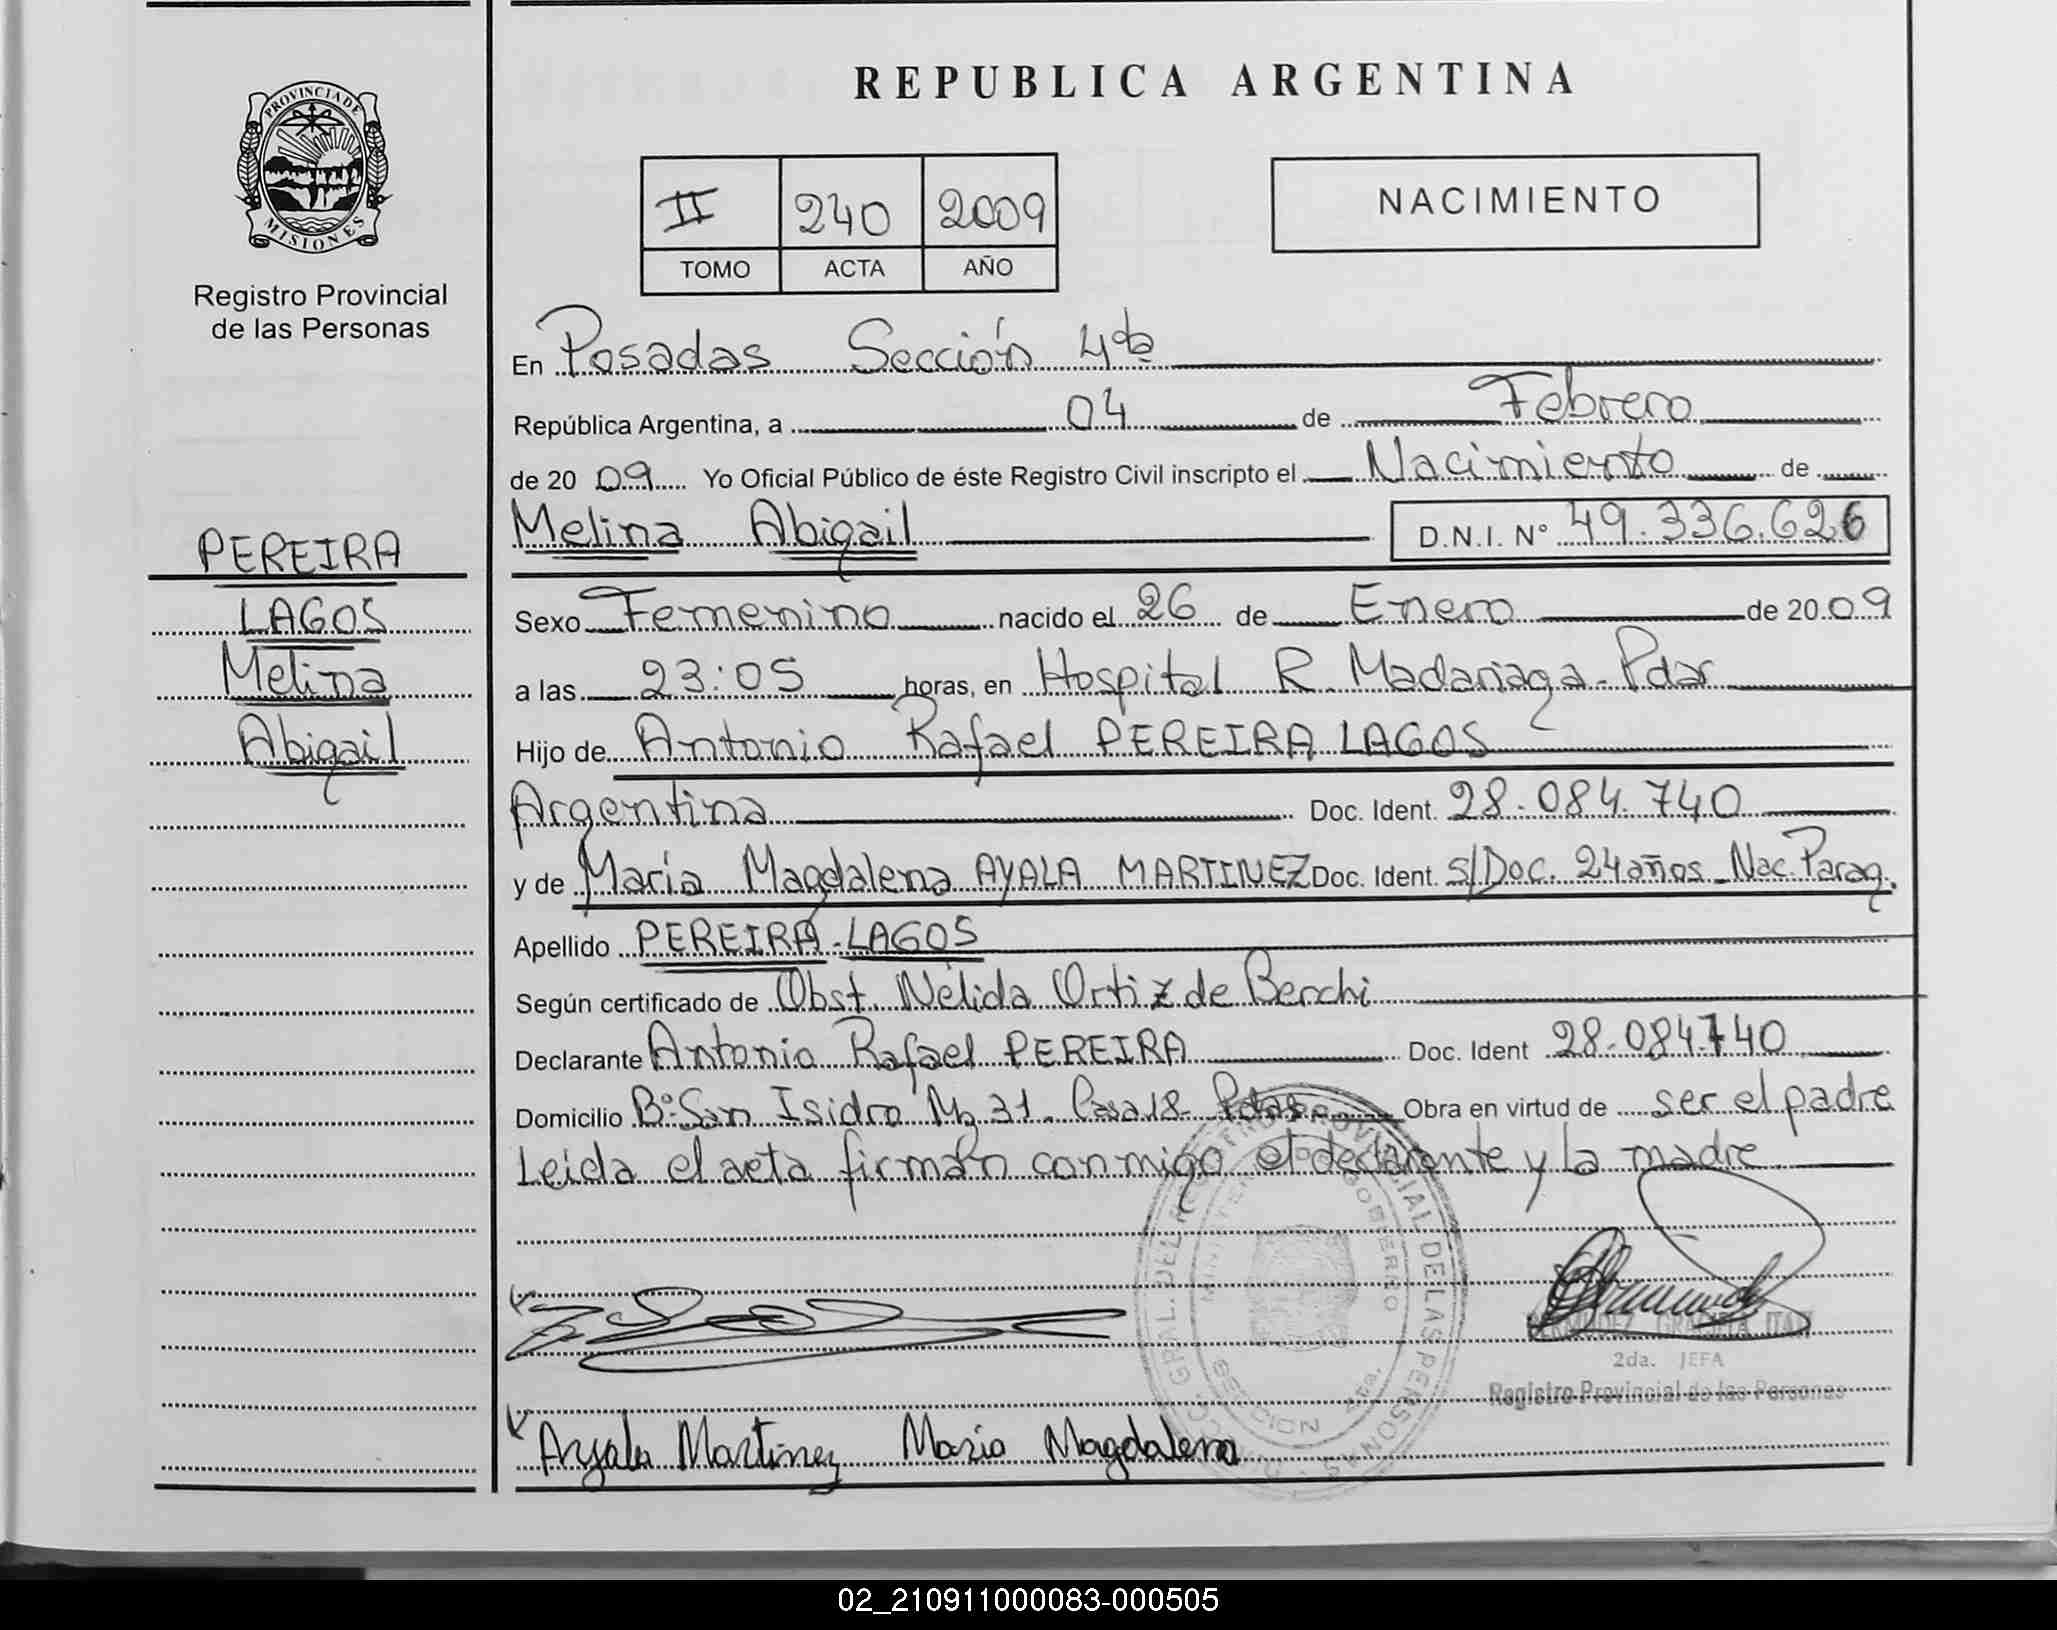 REPUBLICA ARGENTINA
PROVINCIA DE
MISIONES
Registro Provincial
de las Personas
II 240 2009
TOMO ACTA AÑO
NACIMIENTO
PEREIRA
LAGOS
Melina
Abigail
En Posadas Sección 4ta
República Argentina, a 04 de Febrero
de 20 09 Yo Oficial Público de éste Registro Civil inscripto el Nacimiento de
Melina Abigail D.N.I. N° 49.336.626
Sexo Femenino nacido el 26 de Enero de 20 09
a las 23:05 horas, en Hospital R. Madariaga - Pdas
Hijo de Antonio Rafael PEREIRA LAGOS
Argentina Doc. Ident. 28.084.740
y de María Magdalena AYALA MARTINEZ Doc. Ident. S/Doc. 24 años - Nac. Parag.
Apellido PEREIRA - LAGOS
Según certificado de Obst. Nélida Ortiz de Berchi
Declarante Antonio Rafael PEREIRA Doc. Ident 28.084.740
Domicilio B° San Isidro Mz 31 - Casa 18 - Pdas Obra en virtud de ser el padre
Leida el acta firman conmigo el declarante y la madre
2da. JEFA
Registro Provincial de las Personas
Ayala Martinez Maria Magdalena
02_210911000083-000505